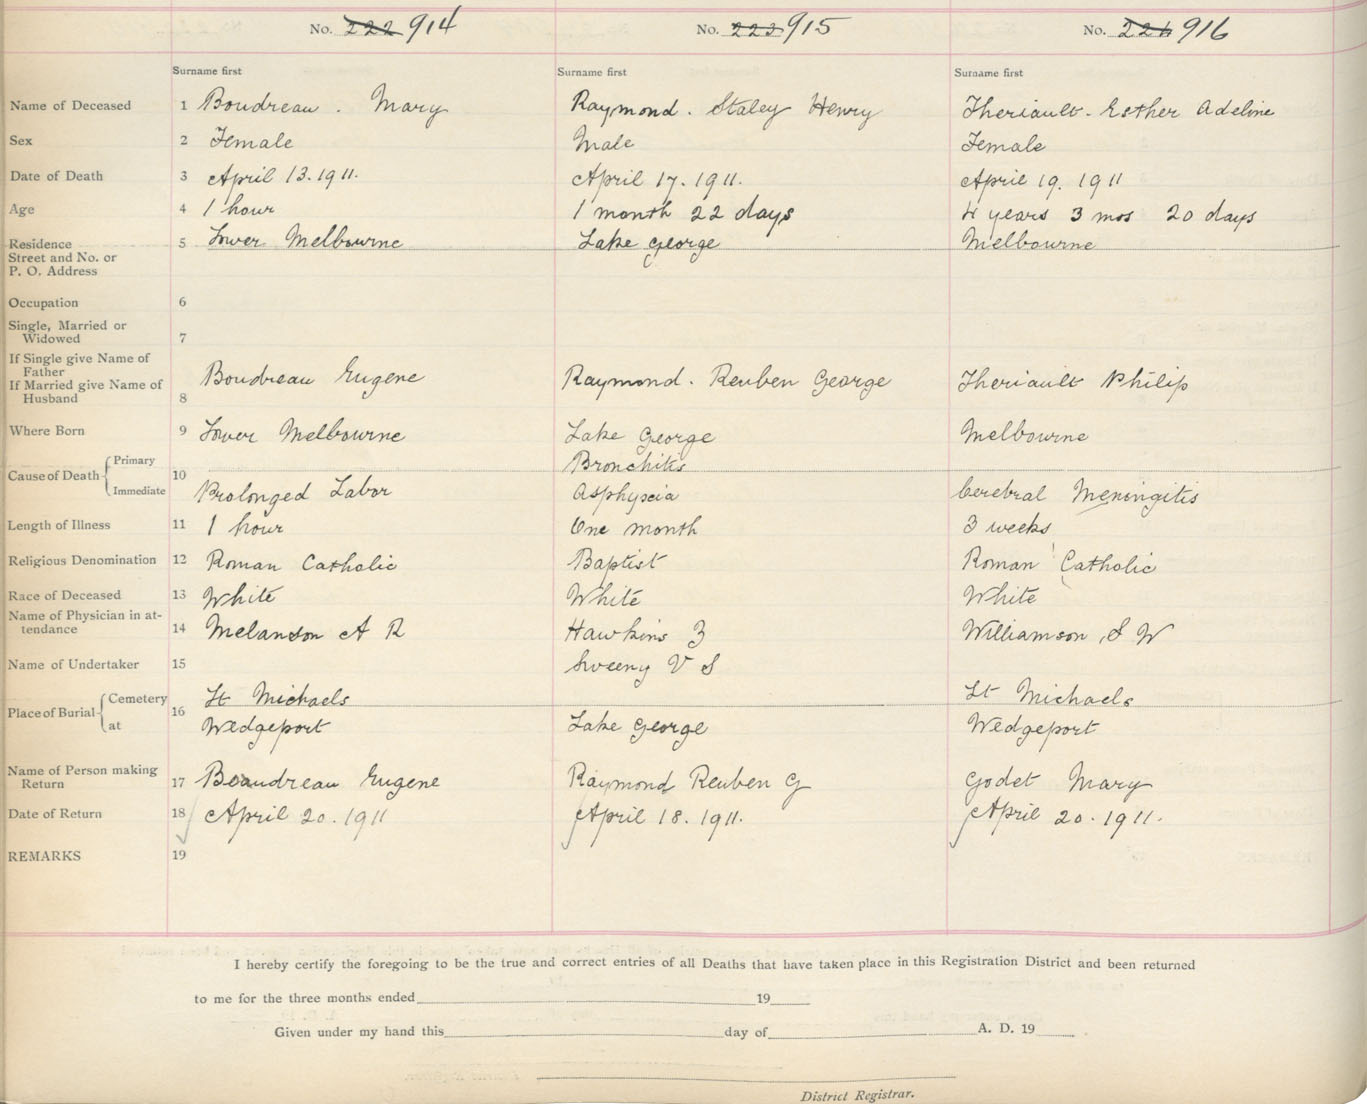 No. 222 914 No. 223 915 No. 224 916
Surname first Surname first Surname first
Name of Deceased 1 Boudreau . Mary Raymond . Staley Henry Theriault - Esther Adeline
Sex 2 Female Male Female
Date of Death 3 April 13. 1911. April 17. 1911. April 19. 1911
Age 4 1 hour 1 month 22 days 4 years 3 mos 20 days
Residence 5 Lower Melbourne Lake George Melbourne
Street and No. or
P. O. Address
Occupation 6
Single, Married or
Widowed 7
If Single give Name of
Father
If Married give Name of Boudreau Eugene Raymond . Reuben George Theriault Philip
Husband 8
Where Born 9 Lower Melbourne Lake George Melbourne
Primary Bronchitis
Cause of Death 10
Immediate Prolonged Labor Asphyxia Cerebral Meningitis
Length of Illness 11 1 hour One month 3 weeks
Religious Denomination 12 Roman Catholic Baptist Roman Catholic
Race of Deceased 13 White White White
Name of Physician in at-
tendance 14 Melanson A R Hawkins Z Williamson, S W
Name of Undertaker 15 Sweeny V S
Cemetery St Michaels St Michaels
Place of Burial 16
at Wedgeport Lake George Wedgeport
Name of Person making
Return 17 Beaudreau Eugene Raymond Reuben G Godet Mary
Date of Return 18 April 20. 1911 April 18. 1911. April 20. 1911.
REMARKS 19
I hereby certify the foregoing to be the true and correct entries of all Deaths that have taken place in this Registration District and been returned
to me for the three months ended 19
Given under my hand this day of A. D. 19
District Registrar.